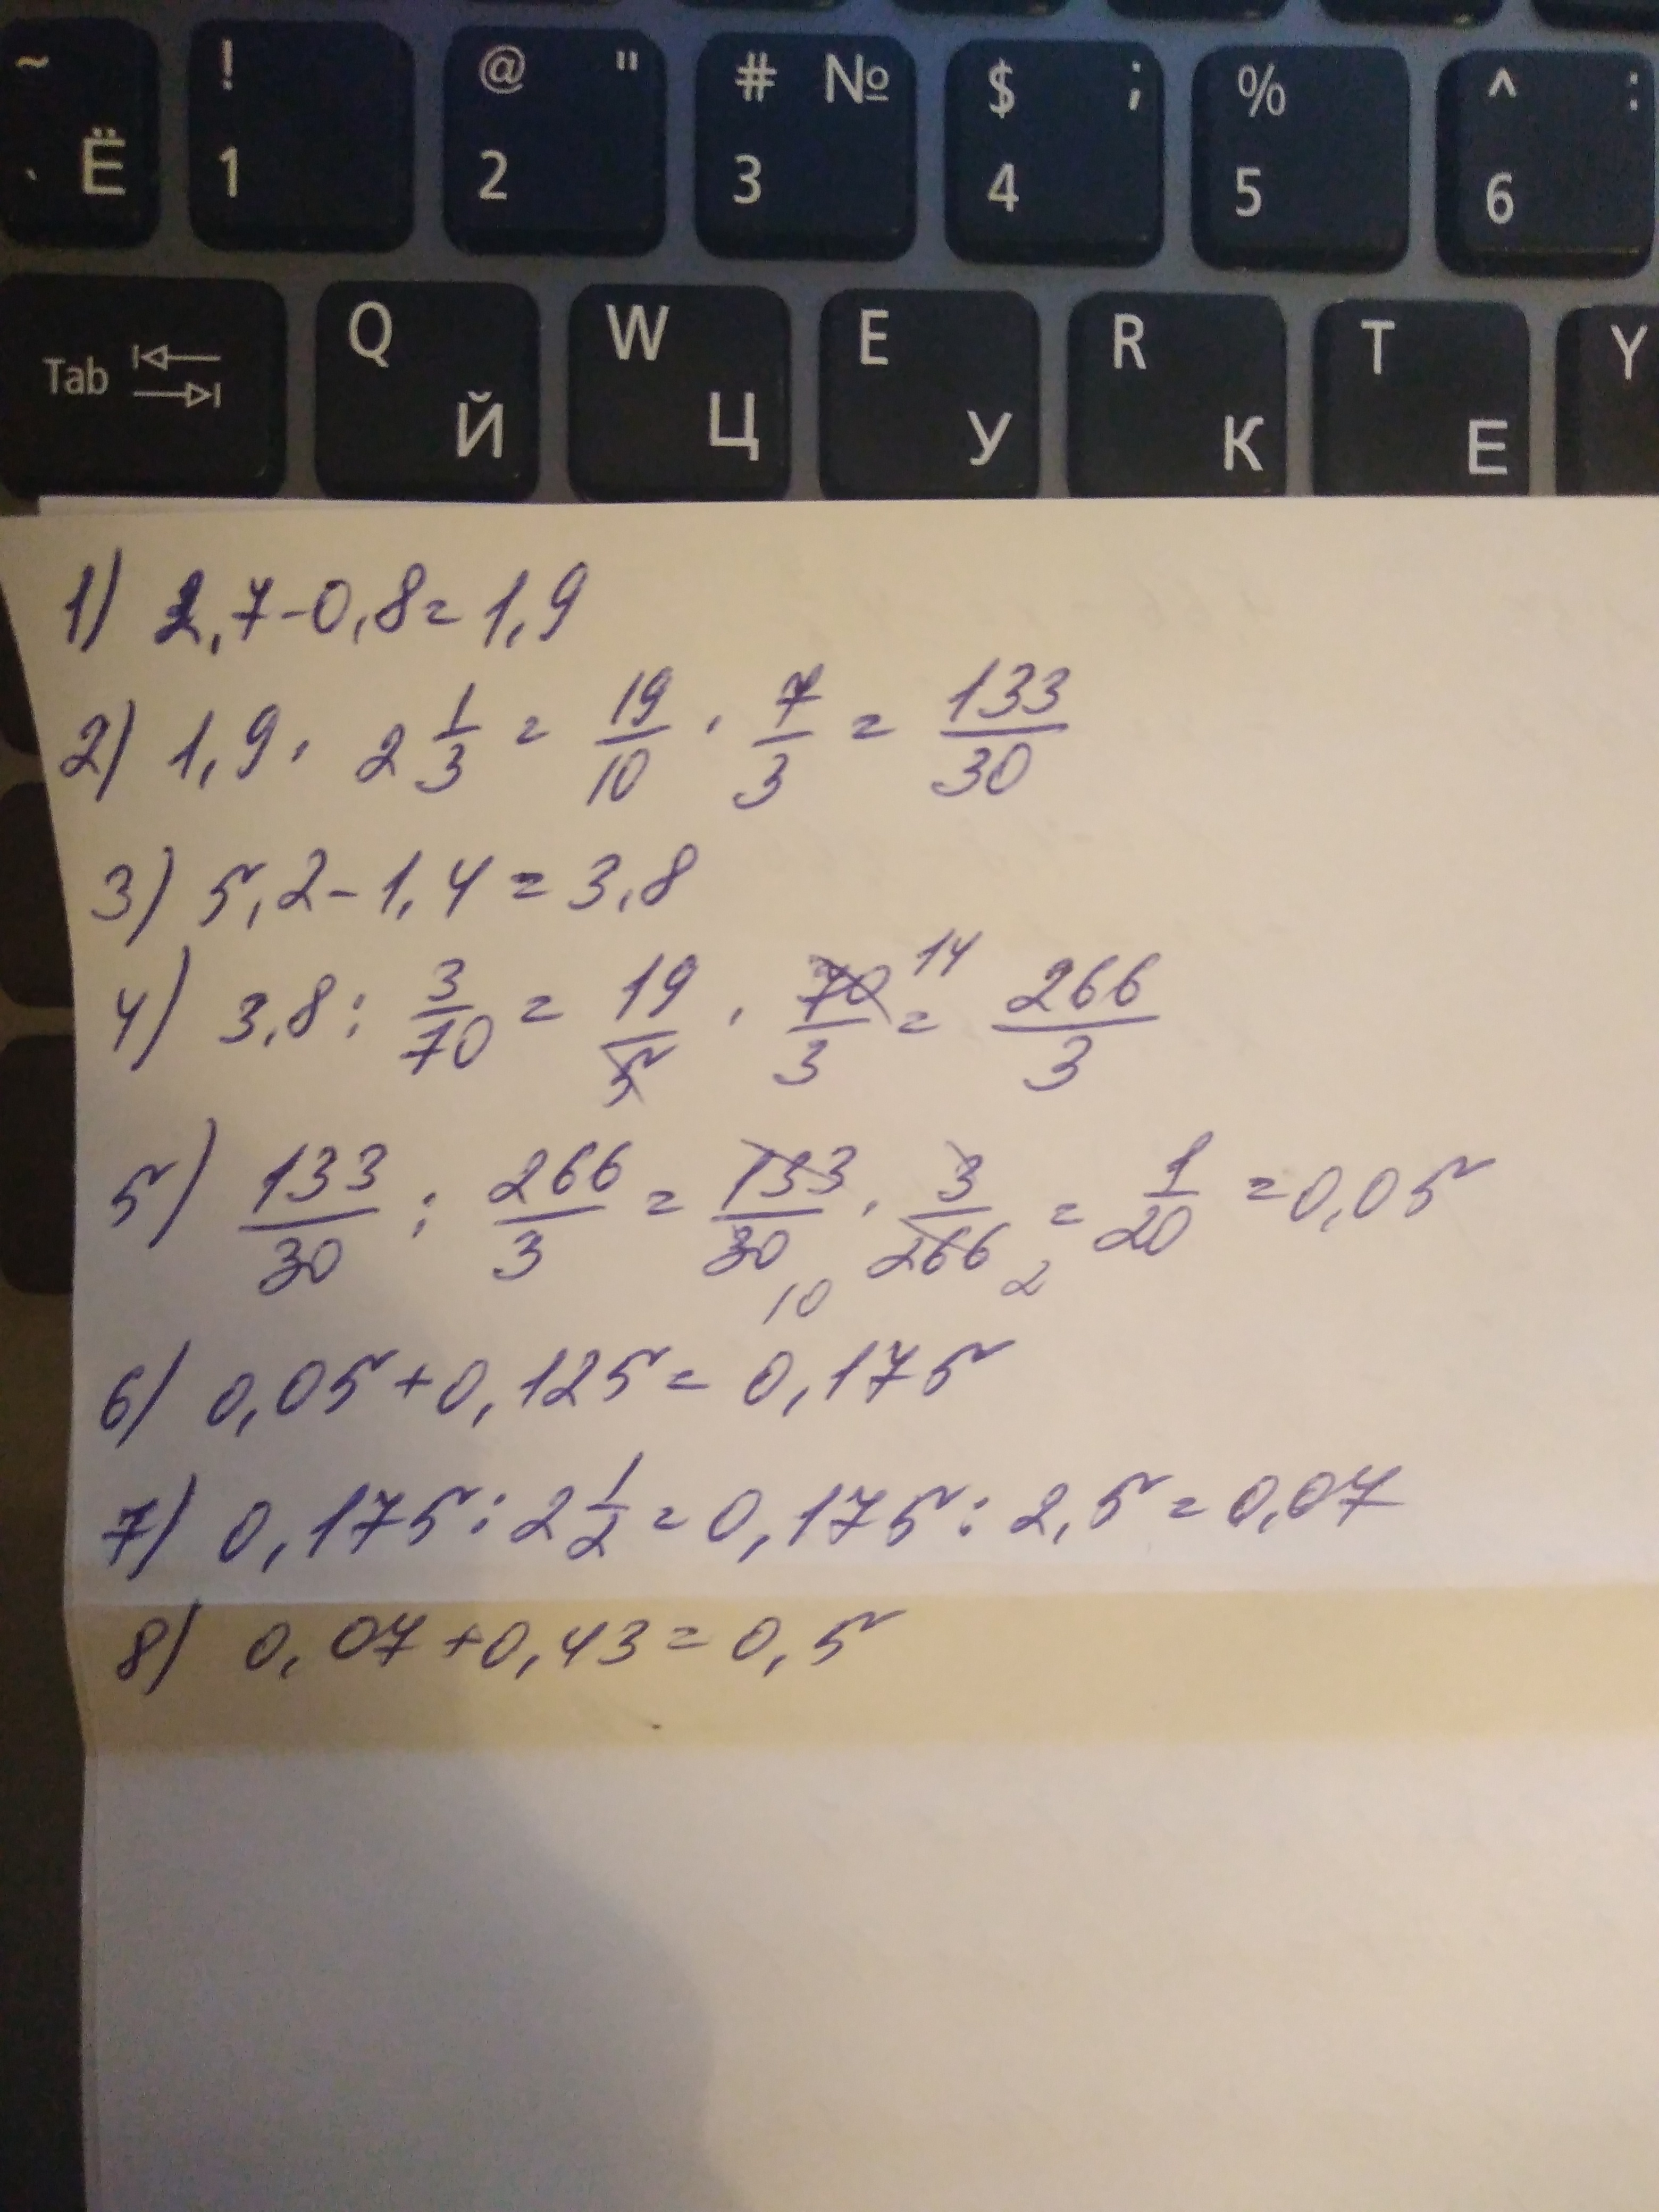 ~ ! @ " # № $ ; % ^ :
` Ё 1 2 3 4 5 6
Q W E R T Y
Tab Й Ц У К Е
1) 2,7-0,8=1,9
2) 1,9 · 2 1/3 = 19/10 · 7/3 = 133/30
3) 5,2-1,4=3,8
4) 3,8 : 3/70 = 19/5 · 70/3 14 = 266/3
5) 133/30 : 266/3 = 133/30 10 · 3/266 2 = 1/20 =0,05
6) 0,05+0,125=0,175
7) 0,175:2 1/2=0,175:2,5=0,07
8) 0,07+0,43=0,5